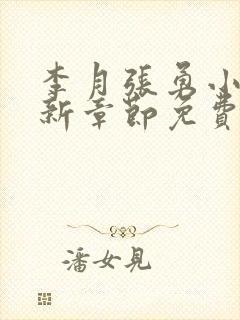 李月張勇小
新章節免費
潘女見